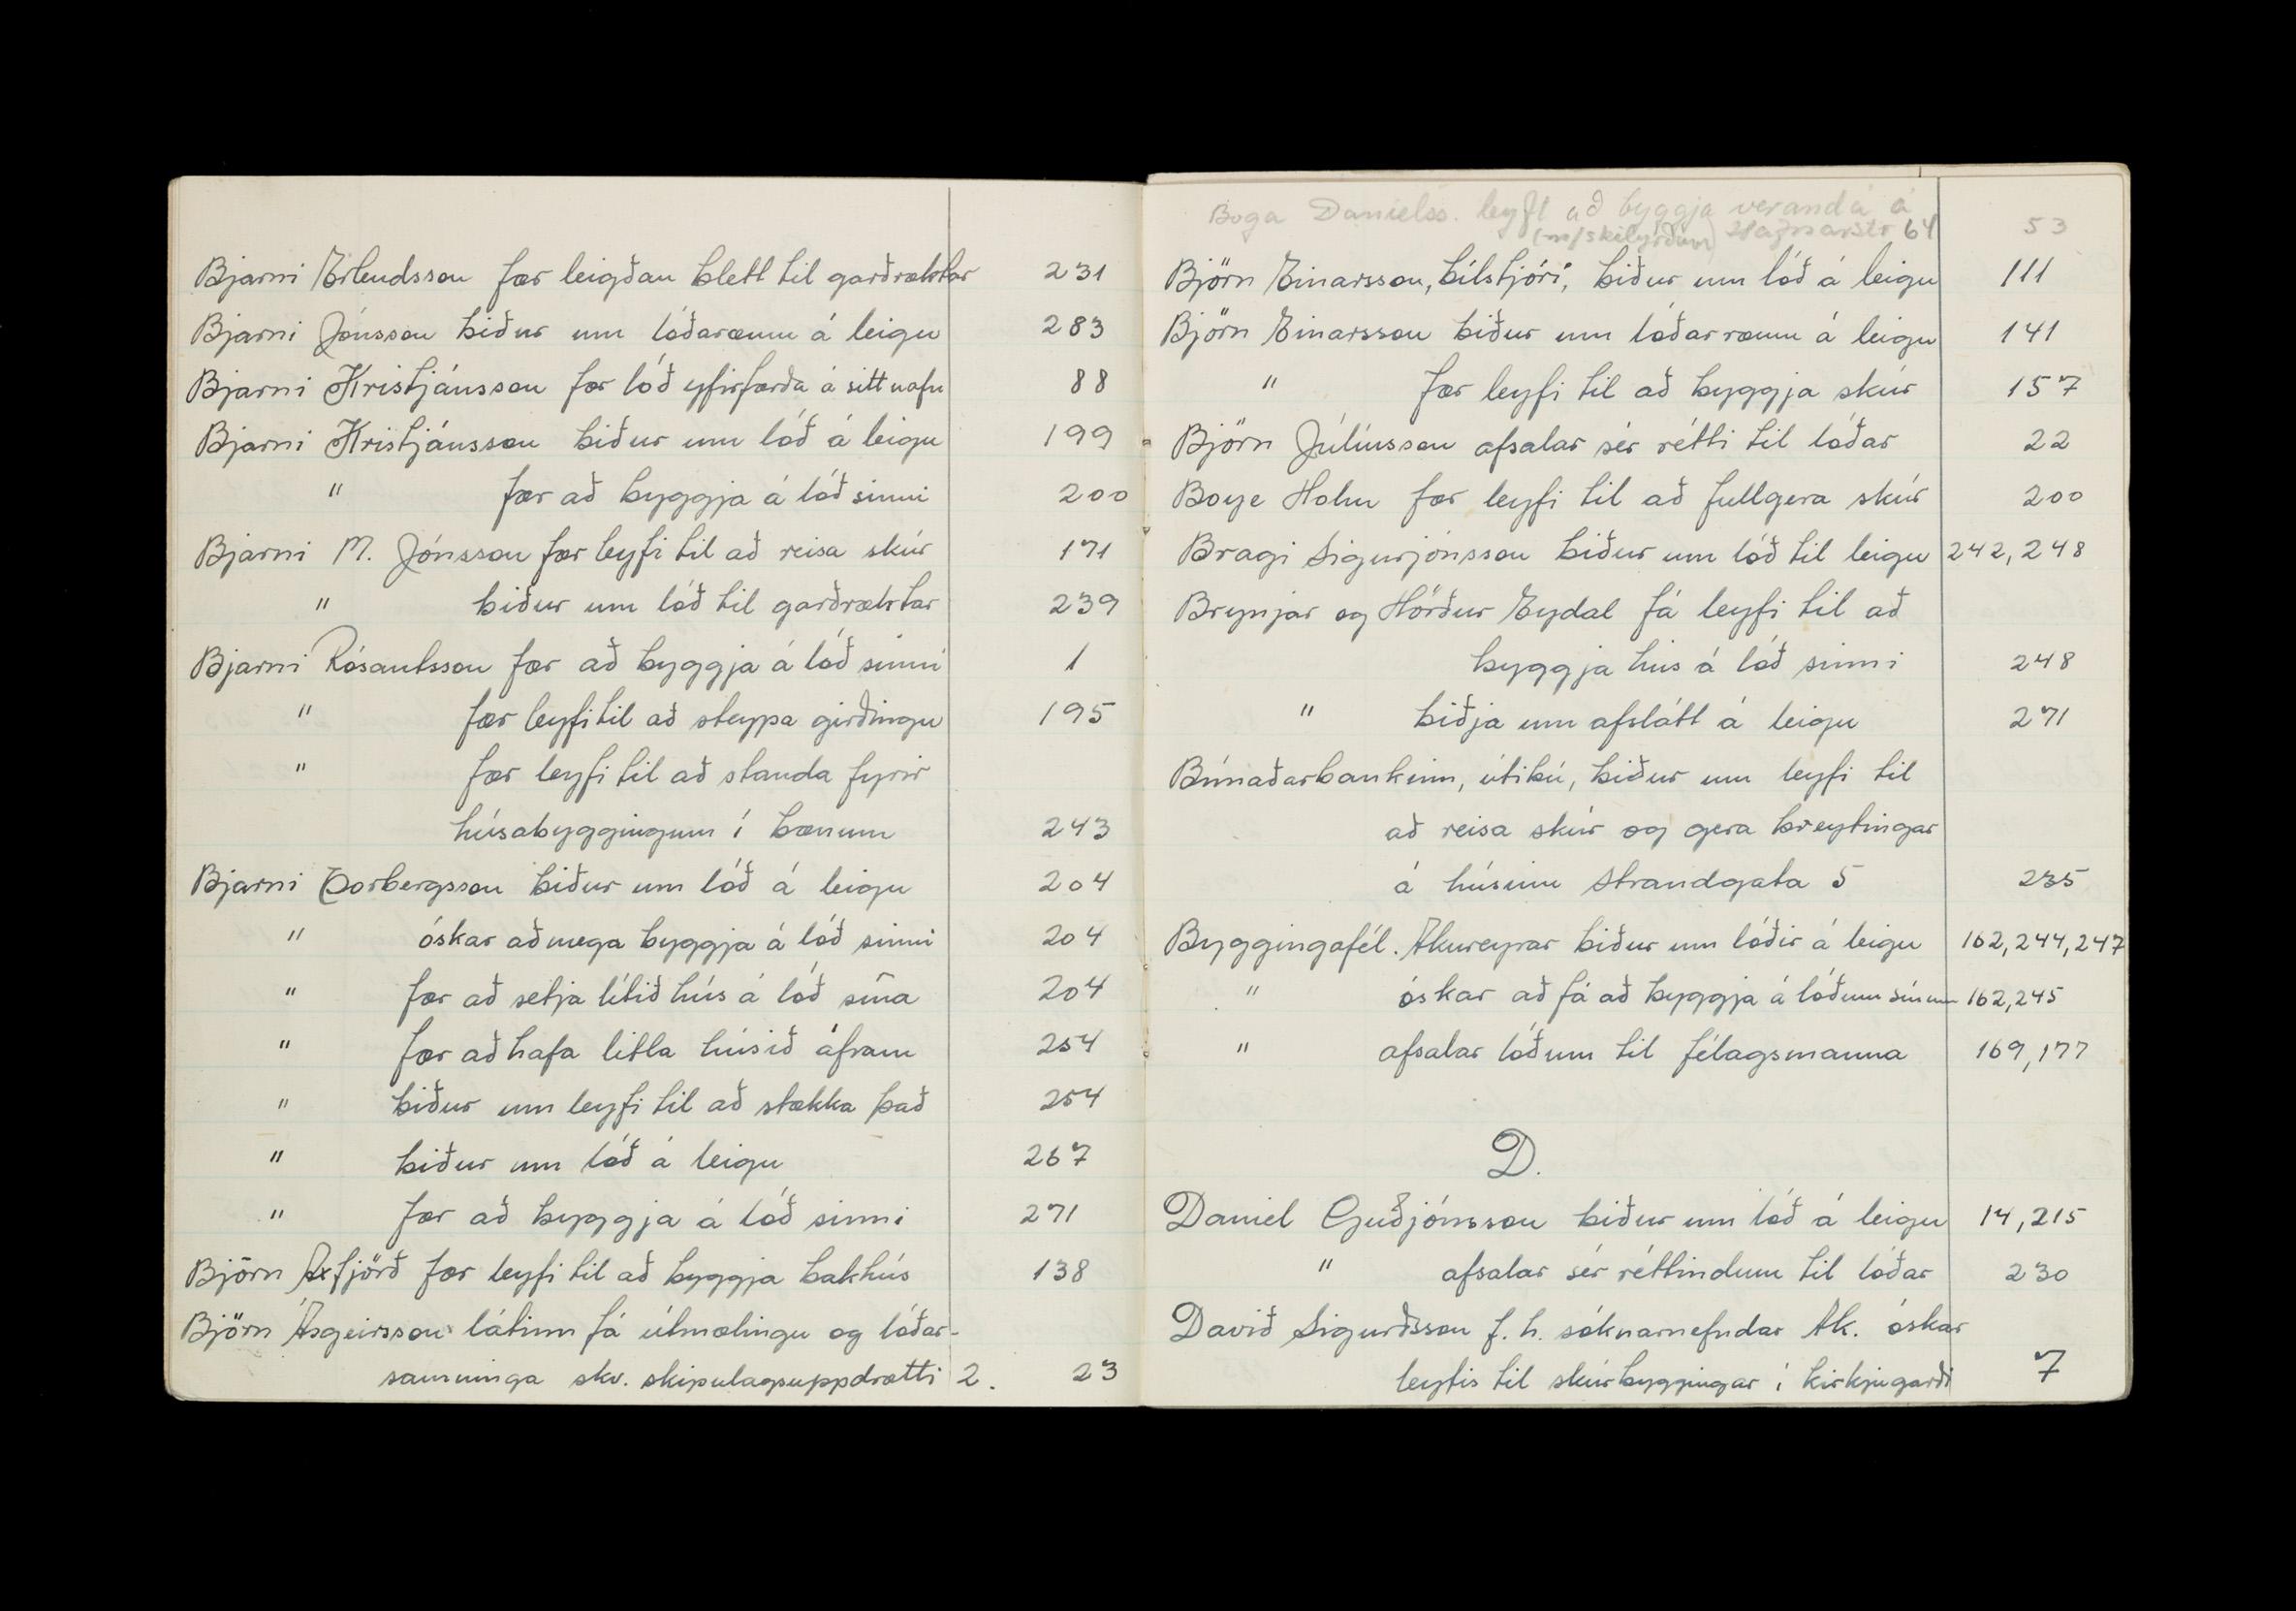 Bjarni Erlendsson fær leigðan blett til garðræktar 231
Bjarni Jónsson biður um lóðarræmu á leigu 283
Bjarni Kristjánsson fær lóð yfirfærða á sitt nafn 88
Bjarni Kristjánsson biður um lóð á leigu 199
" fær að byggja á lóð sinni 200
Bjarni M. Jónsson fær leyfi til að reisa skúr 171
" biður um lóð til garðræktar 239
Bjarni Rósantsson fær að byggja á lóð sinni 1
" fær leyfi til að steypa girðingu 195
" fær leyfi til að standa fyrir
húsabyggingum í bænum 243
Bjarni Þorbergsson biður um lóð á leigu 204
" óskar að mega byggja á lóð sinni 204
" fær að setja lítið hús á lóð sína 204
" fær að hafa litla húsið áfram 254
" biður um leyfi til að stækka það 254
" biður um lóð á leigu 267
" fær að byggja á lóð sinni 271
Björn Axfjörð fær leyfi til að byggja bakhús 138
Björn Ásgeirsson látinn fá útmælingu og lóðar-
samninga skv. skipulagsuppdrætti 2. 23
Boga Daníelss. leyft að byggja veranda á
(m/skilyrðum) Hafnarstr 64 53
Björn Einarsson, bílstjóri, biður um lóð á leigu 111
Björn Einarsson biður um lóðarræmu á leigu 141
" fær leyfi til að byggja skúr 157
Björn Júlíusson afsalar sér rétti til lóðar 22
Boye Holm fær leyfi til að fullgera skúr 200
Bragi Sigurjónsson biður um lóð til leigu 242, 248
Brynjar og Hörður Eydal fá leyfi til að
byggja hús á lóð sinni 248
" biðja um afslátt á leigu 271
Búnaðarbankinn, útibú, biður um leyfi til
að reisa skúr og gera breytingar
á húsinu Strandgata 5 235
Byggingafél. Akureyrar biður um lóðir á leigu 162, 244, 247
" óskar að fá að byggja á lóðum sínum 162, 245
" afsalar lóðum til félagsmanna 169, 177
D.
Daníel Guðjónsson biður um lóð á leigu 14, 215
" afsalar sér réttindum til lóðar 230
Davíð Sigurðsson f. h. sóknarnefndar Ak. óskar
leyfis til skúrbyggingar í kirkjugarði 7